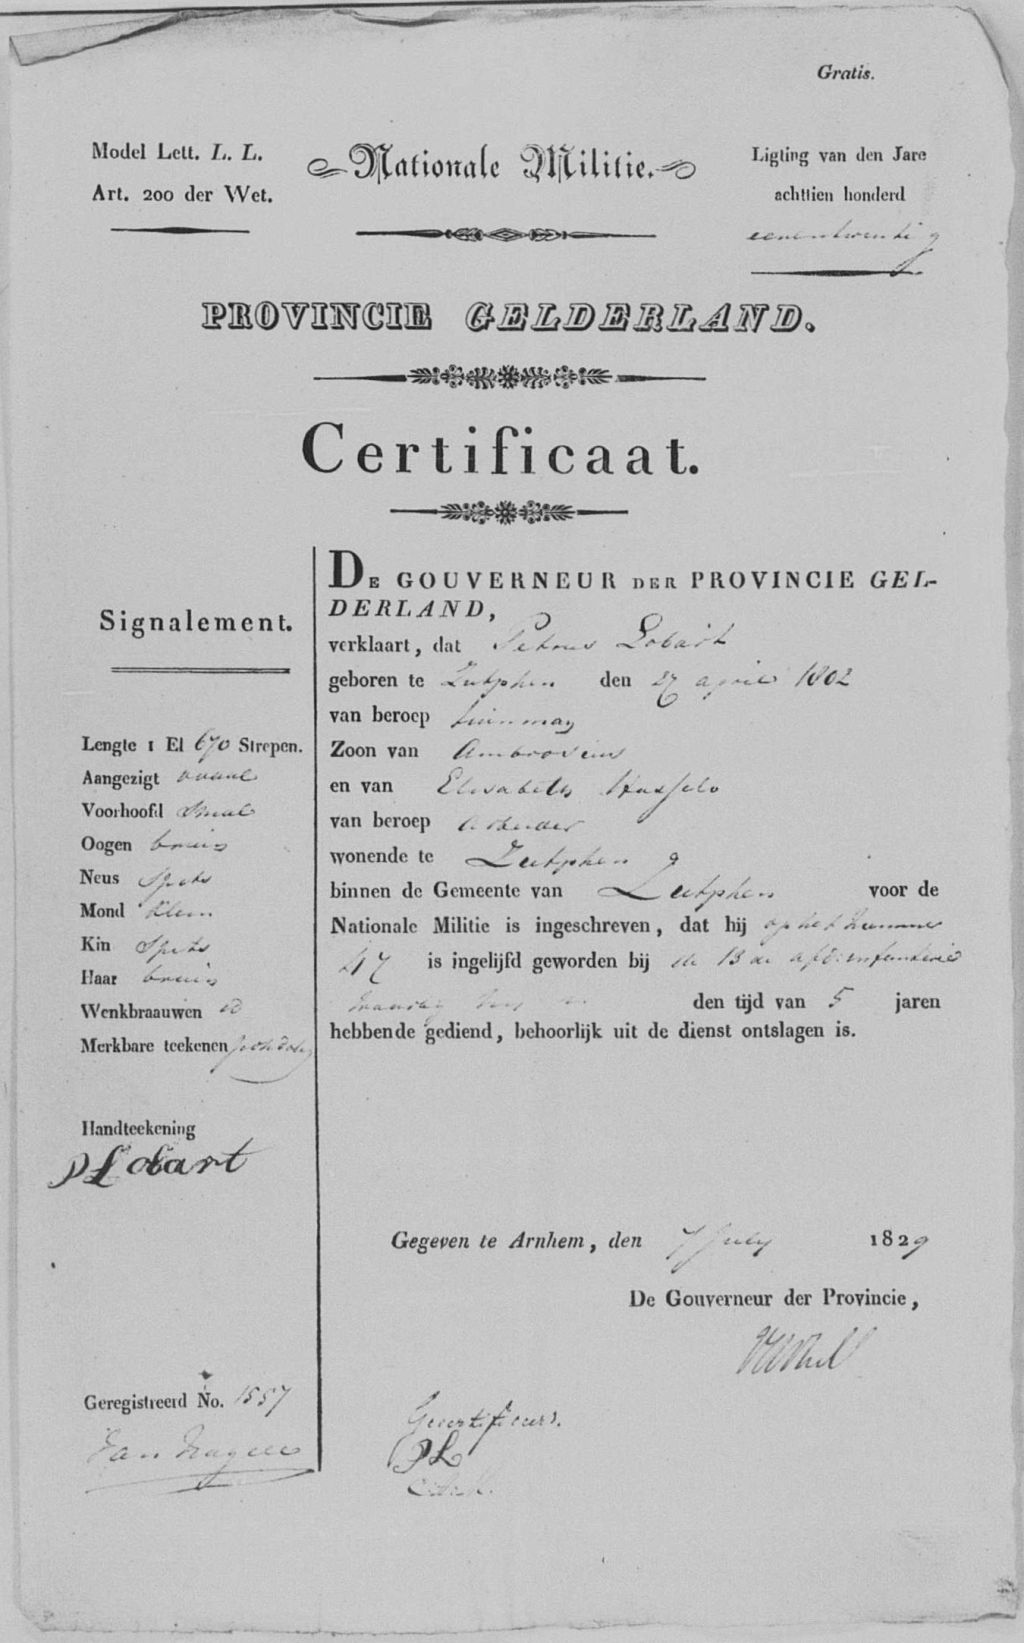 Gratis.
Model Lett. L. L.
Art. 200 der Wet.
Nationale Militie.
Ligting van den Jare
achttien honderd
eenentwentig
PROVINCIE GELDERLAND.
Certificaat.
Signalement.
Lengte 1 El 670 Strepen.
Aangezigt ovaal
Voorhoofd Smal
Oogen bruin
Neus Spits
Mond Klein
Kin Spits
Haar bruin
Wenkbraauwen id
Merkbare teekenen pokdalig
Handteekening
P Lobart
Geregistreerd No. 1557
DE GOUVERNEUR DER PROVINCIE GEL-
DERLAND,
verklaart, dat Petrus Lobart
geboren te Zutphen den 27 april 1802
van beroep
Zoon van Ambrosius
en van Elisabeth Hasselo
van beroep arbeider
wonende te Zutphen
binnen de Gemeente van Zutphen voor de
Nationale Militie is ingeschreven, dat hij op het Nummer
47 is ingelijfd geworden bij de 13de afd: infanterie
den tijd van 5 jaren
hebbende gediend, behoorlijk uit de dienst ontslagen is.
Gegeven te Arnhem, den 7 July 1829
De Gouverneur der Provincie,
PL